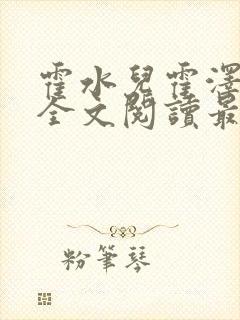 霍水兒霍澤
全文閱讀最
粉筆琴